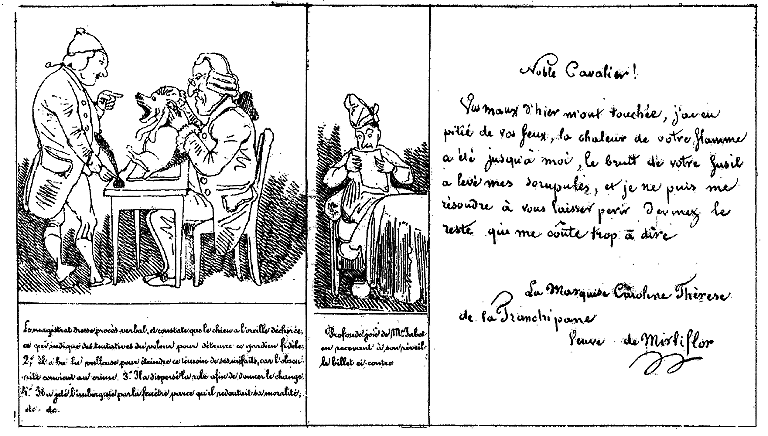 Le magistrat dresse procès verbal, et constate que le chien a l'oreille déchirée,
ce qui indique des tentatives du voleur pour détruire ce gardien fidèle.
2.º Il a bu la veilleuse pour éteindre ce témoin de ses méfaits, car l'obscu-
rité convient au crime. 3.º Il a dispersé la robe afin de donner le change.
4.º Il a jeté l'aubergiste par la fenêtre parce qu'il redoutait sa moralité,
etc. etc.
Profonde joie de Mr. Jabot
en recevant à son réveil
le billet ci-contre
Noble Cavalier!
Vos maux d'hier m'ont touchée, j'ai eu
pitié de vos feux, la chaleur de votre flamme
a été jusqu'à moi, le bruit de votre fusil
a levé mes scrupules, et je ne puis me
résoudre à vous laisser périr Devinez le
reste qui me coûte trop à dire
La Marquise Caroline Thérèse
de la Franchipane
Veuve de Mirliflor